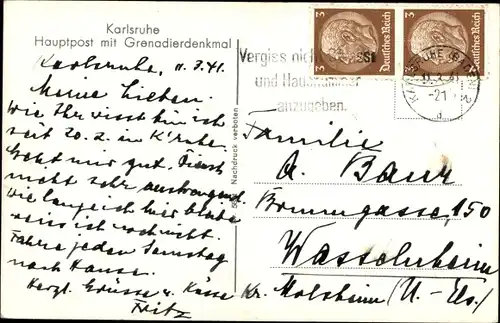 Karlsruhe
Hauptpost mit Grenadierdenkmal
Karlsruhe, 11.3.41.
Meine Lieben.
Wie Ihr wisst bin ich
seit 20.2. in K'ruhe.
Geht mir gut. Dienst
nicht sehr anstrengend.
Wie lange ich hier bleibe
weiss ich noch nicht.
Fahre jeden Samstag
nach Hause.
Herzl. Grüsse u. Küsse
Fritz
Nachdruck verboten
3 Deutsches Reich
3 Deutsches Reich
Vergiss nicht
und Hausnummer
anzugeben.
KARLSRUHE (BADEN) 2
-21
d
Familie
A. Baur
Brunngasse, 150
Wasselnheim
Kr. Molsheim (U.-Els.)